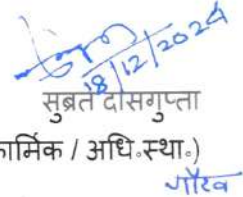 18/12/2024
सुब्रत दासगुप्ता
कार्मिक / अधि.स्था.)
गौरव